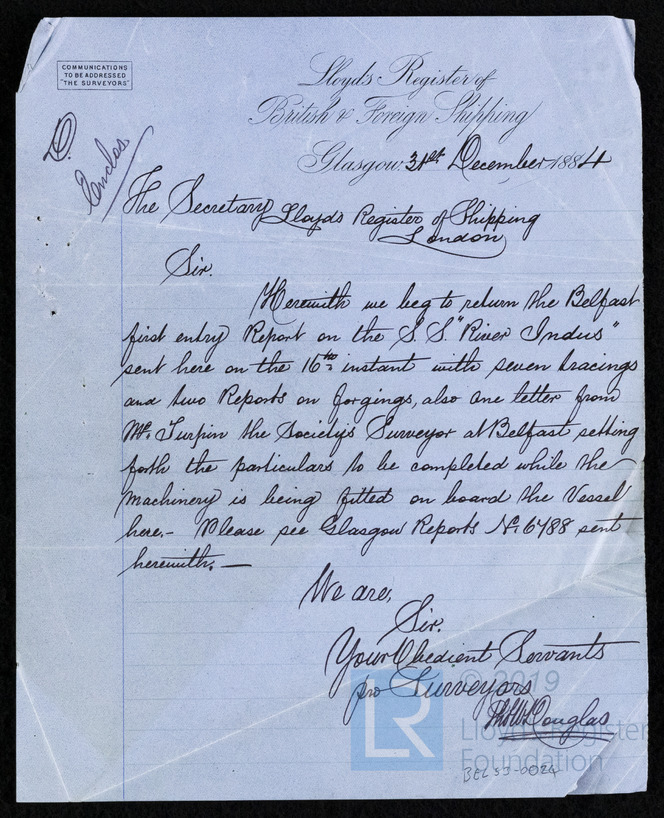 COMMUNICATIONS
TO BE ADDRESSED
"THE SURVEYORS"
Lloyds Register of
British & Foreign Shipping
Glasgow 31st December 1884
Enclos
The Secretary Lloyds Register of Shipping
London
Sir.
Herewith we beg to return the Belfast
first entry Report on the S.S. "River Indus"
sent here on the 16th instant with seven tracings
and two Reports on forgings, also one letter from
Mr. Turpin the Society's Surveyor at Belfast setting
forth the particulars to be completed while the
machinery is being fitted on board the Vessel
here.- Please see Glasgow Reports No. 6788 sent
herewith. —
We are,
Sir.
Your Obedient Servants
pro Surveyors
Douglas
© 2019
Lloyd's Register
Foundation
LR
BEL53-0024